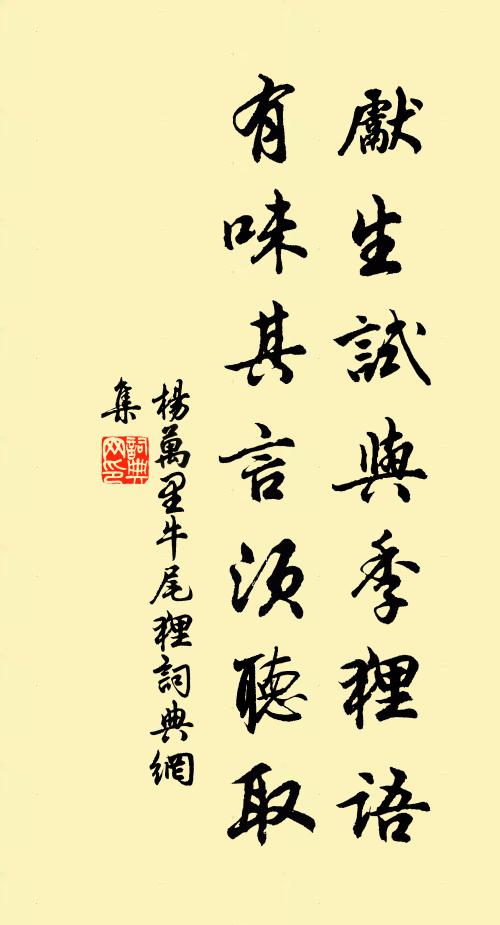 獻生試與季貍語
有味其言須聽取
楊萬里牛尾貍詞典網
集
詞典
網印